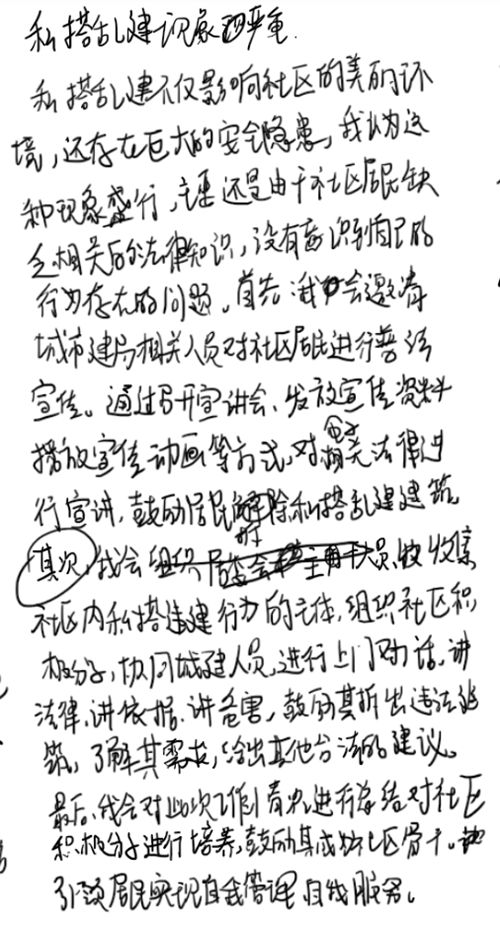 私搭乱建现象严重.
私搭乱建不仅影响社区的美丽环
境,还存在巨大的安全隐患,我认为这
种现象盛行,主要还是由于社区居民缺
乏相关的法律知识,没有意识到自己的
行为存在的问题。首先:我会邀请
城市建局相关人员对社区居民进行普法
宣传。通过召开宣讲会、发放宣传资料
播放宣传动画等方式,对相关法律进
行宣讲,鼓励居民拆除私搭乱建建筑。
其次,我会组织 收集
社区内私搭违建行为的主体,组织社区积
极分子,协同城建人员,进行上门对话,讲
法律,讲依据,讲危害,鼓励其拆出违法建
筑。了解其需求,给出其他合法的建议。
最后,我会对此次工作情况进行总结对社区
积极分子进行培养,鼓励其成为社区骨干。
引领居民实现自我管理,自我服务。